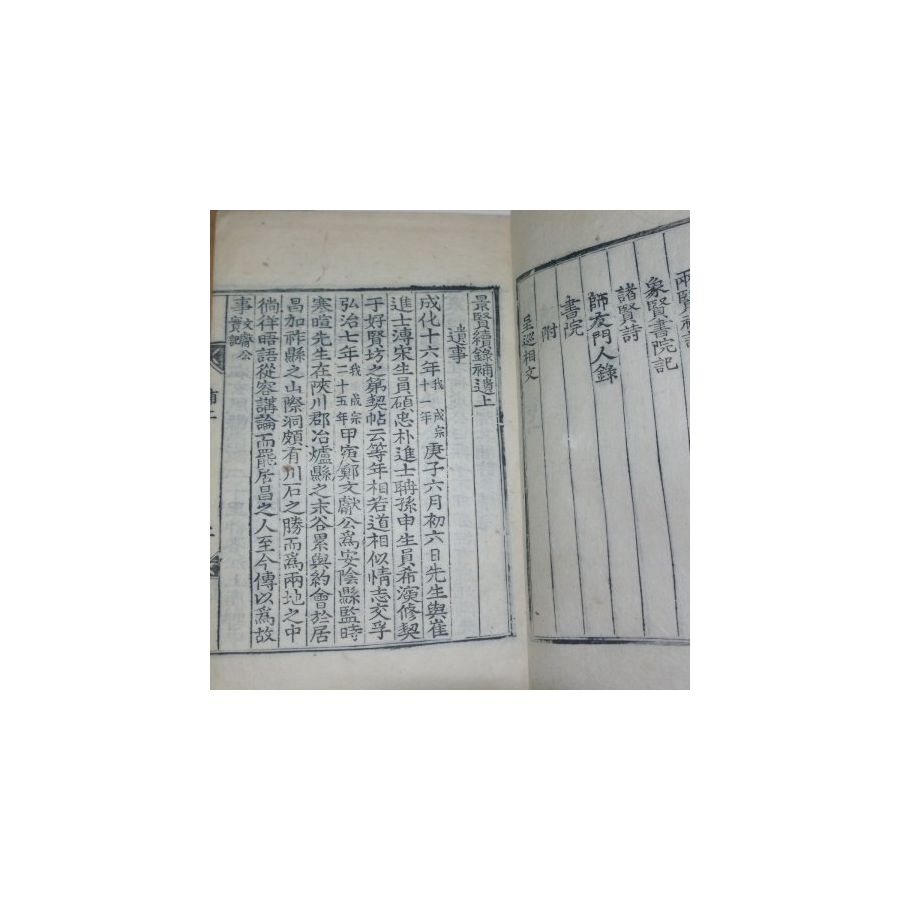 象賢書院記
諸賢詩
師友門人錄
書院
附
呈巡相文
景賢續錄補遺上
遺事
成化十六年我成宗十一年庚子六月初六日先生與崔
進士溥宋生員碩忠朴進士聃孫申生員希演修契
于好賢坊之第契帖云等年相若道相似情志交孚
弘治七年我成宗二十五年甲寅鄭文獻公爲安陰縣監時
寒暄先生在陜川郡冶爐縣之末谷累與約會於居
昌加祚縣之山際洞頗有川石之勝而爲兩地之中
徜徉晤語從容講論而罷居昌之人至今傳以爲故
事文獻公實記